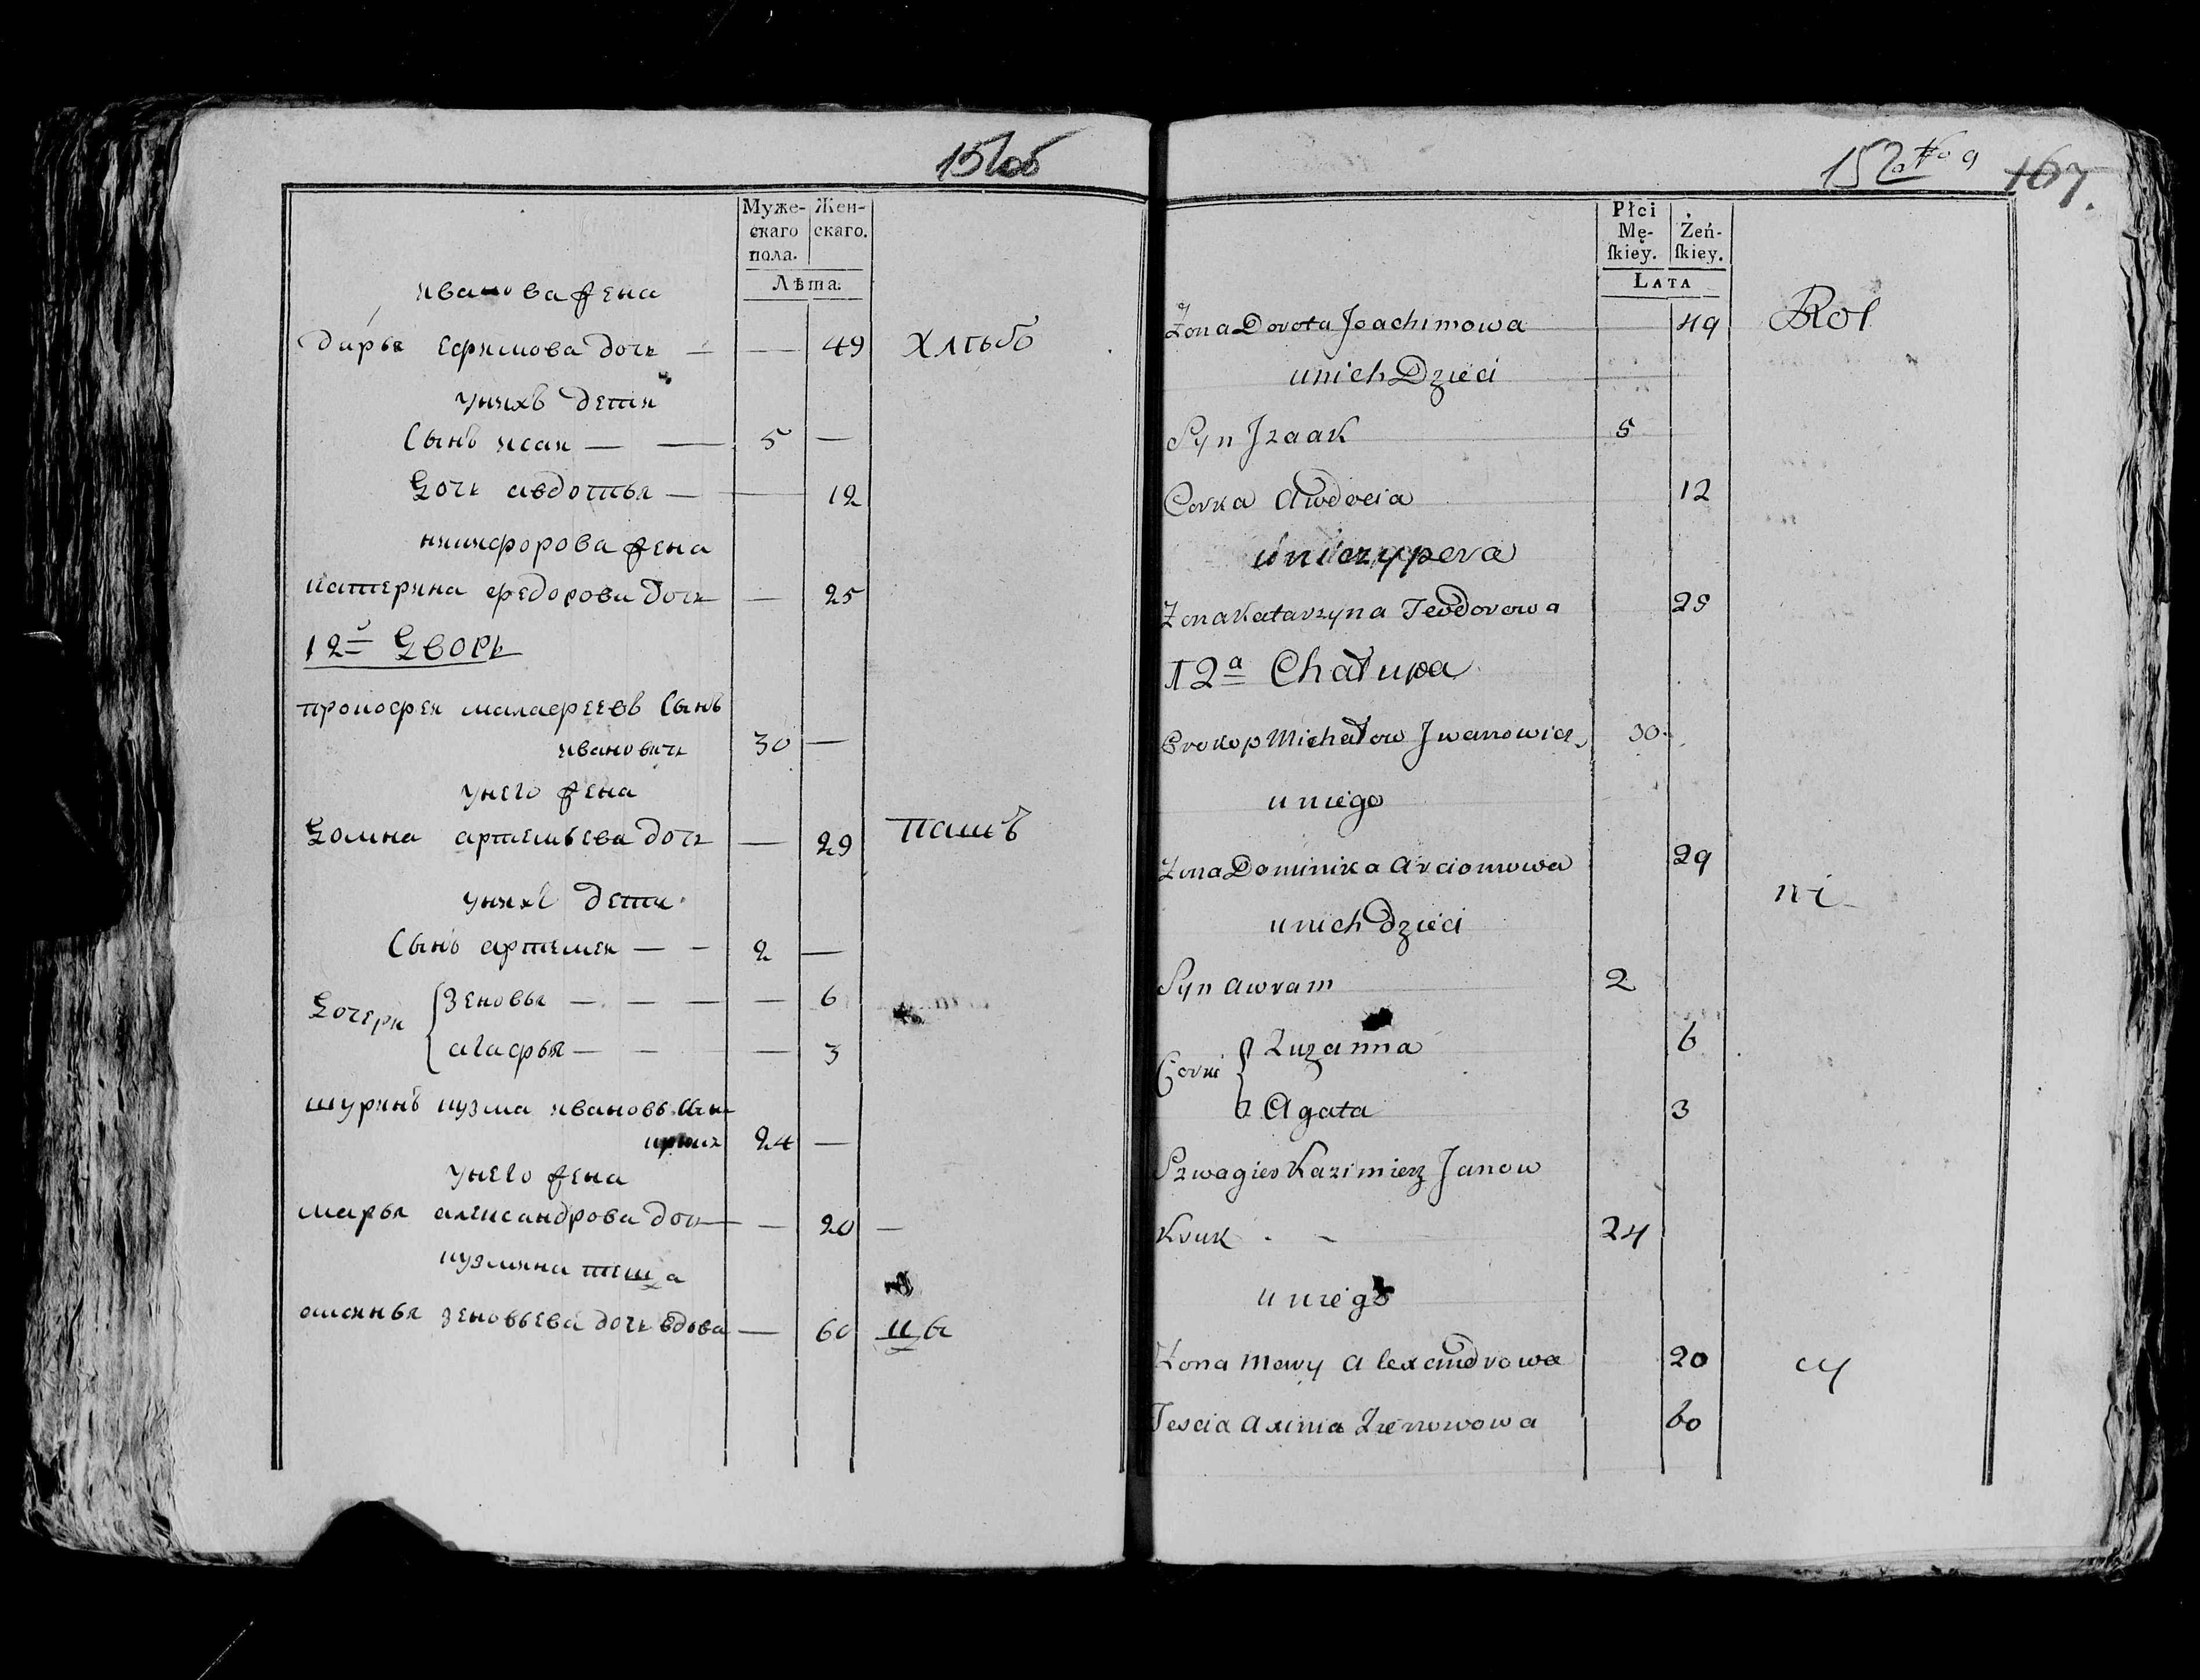 151об
Муже- Жен-
скаго скаго.
пола.
Лѣта.
иванова жена
дарья ефимова дочь — — 49 хлѣбо
унихъ дети
Сынъ исак — — 5 —
Дочь авдотья — — 12
никифорова жена
катерина федорова дочь — 25
12й Дворъ
прокофей малафеевъ Сынъ
ивановичь 30 —
унего жена
Домна артемьева дочь — 29 пашъ
унихъ дети
Сынъ артемеи — — 2 —
Дочери { Зеновья — — — — 6
агафья — — — 3
шуринъ кузма ивановъ сын
24 —
унего жена
марья александрова дочь — — 20 —
кузмина теща
оксинья зеновьева дочь вдова — 60 цы
152 167.
Płci Żeń-
Mę- ſkiey.
ſkiey.
LATA
Żona Dorota Joachimowa 49 Rol
unich Dzieci
Syn Jzaak 5
Corka Awdocia 12
uniczypera
Żona Katarzyna Teodorowa 25
12a Chałupa
Prokop Michałow Jwanowicz 30
uniego
Żona Dominika Arciomowa 29
ni
unich dzieci
Syn Awram 2
Corki { Zuzanna 6
Agata 3
Szwagier Kazimierz Janow
Kruk . - 24
uniego
Żona Mary Alexandrowa 20 cy
Tescia Axinia Zienowowa 60